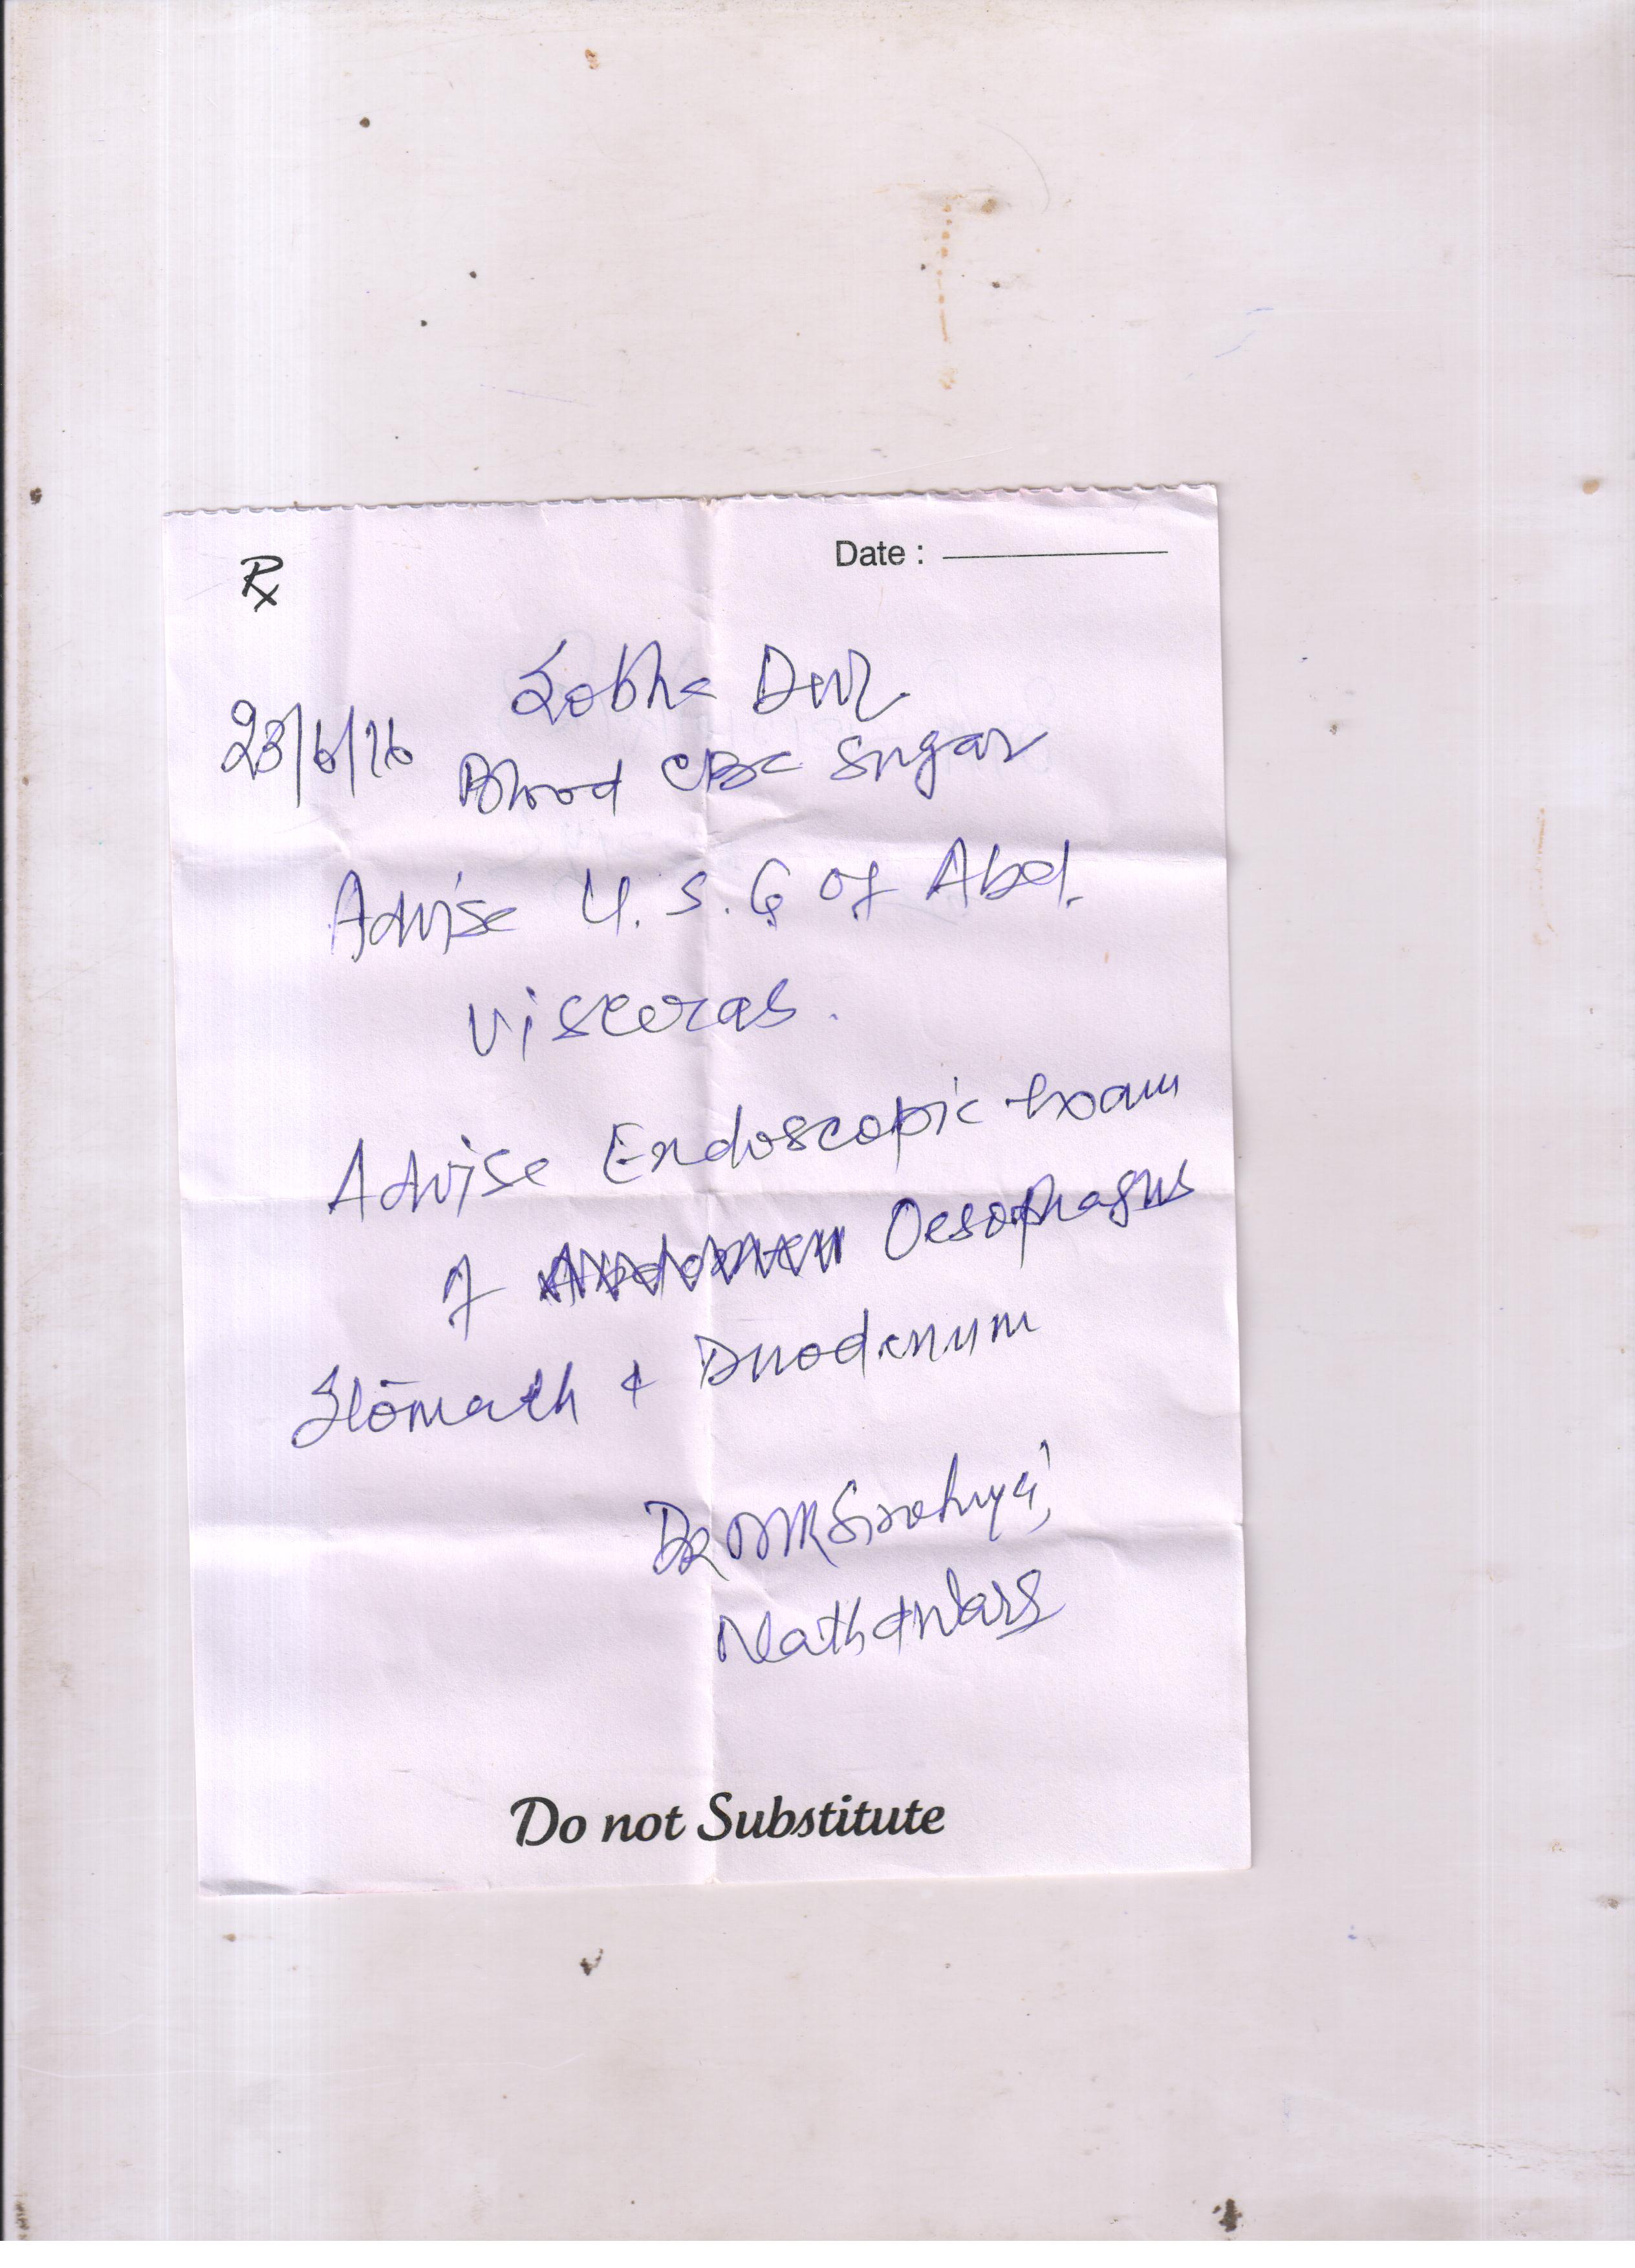 Rx
Date :
Sobha Devi
23/6/16
Blood CBC Sugar
Advise U.S.G of Abd.
visceras.
Advise Endoscopic Exam
of Oesophagus
Stomach & Duodenum
DR
Nathdwara
Do not Substitute